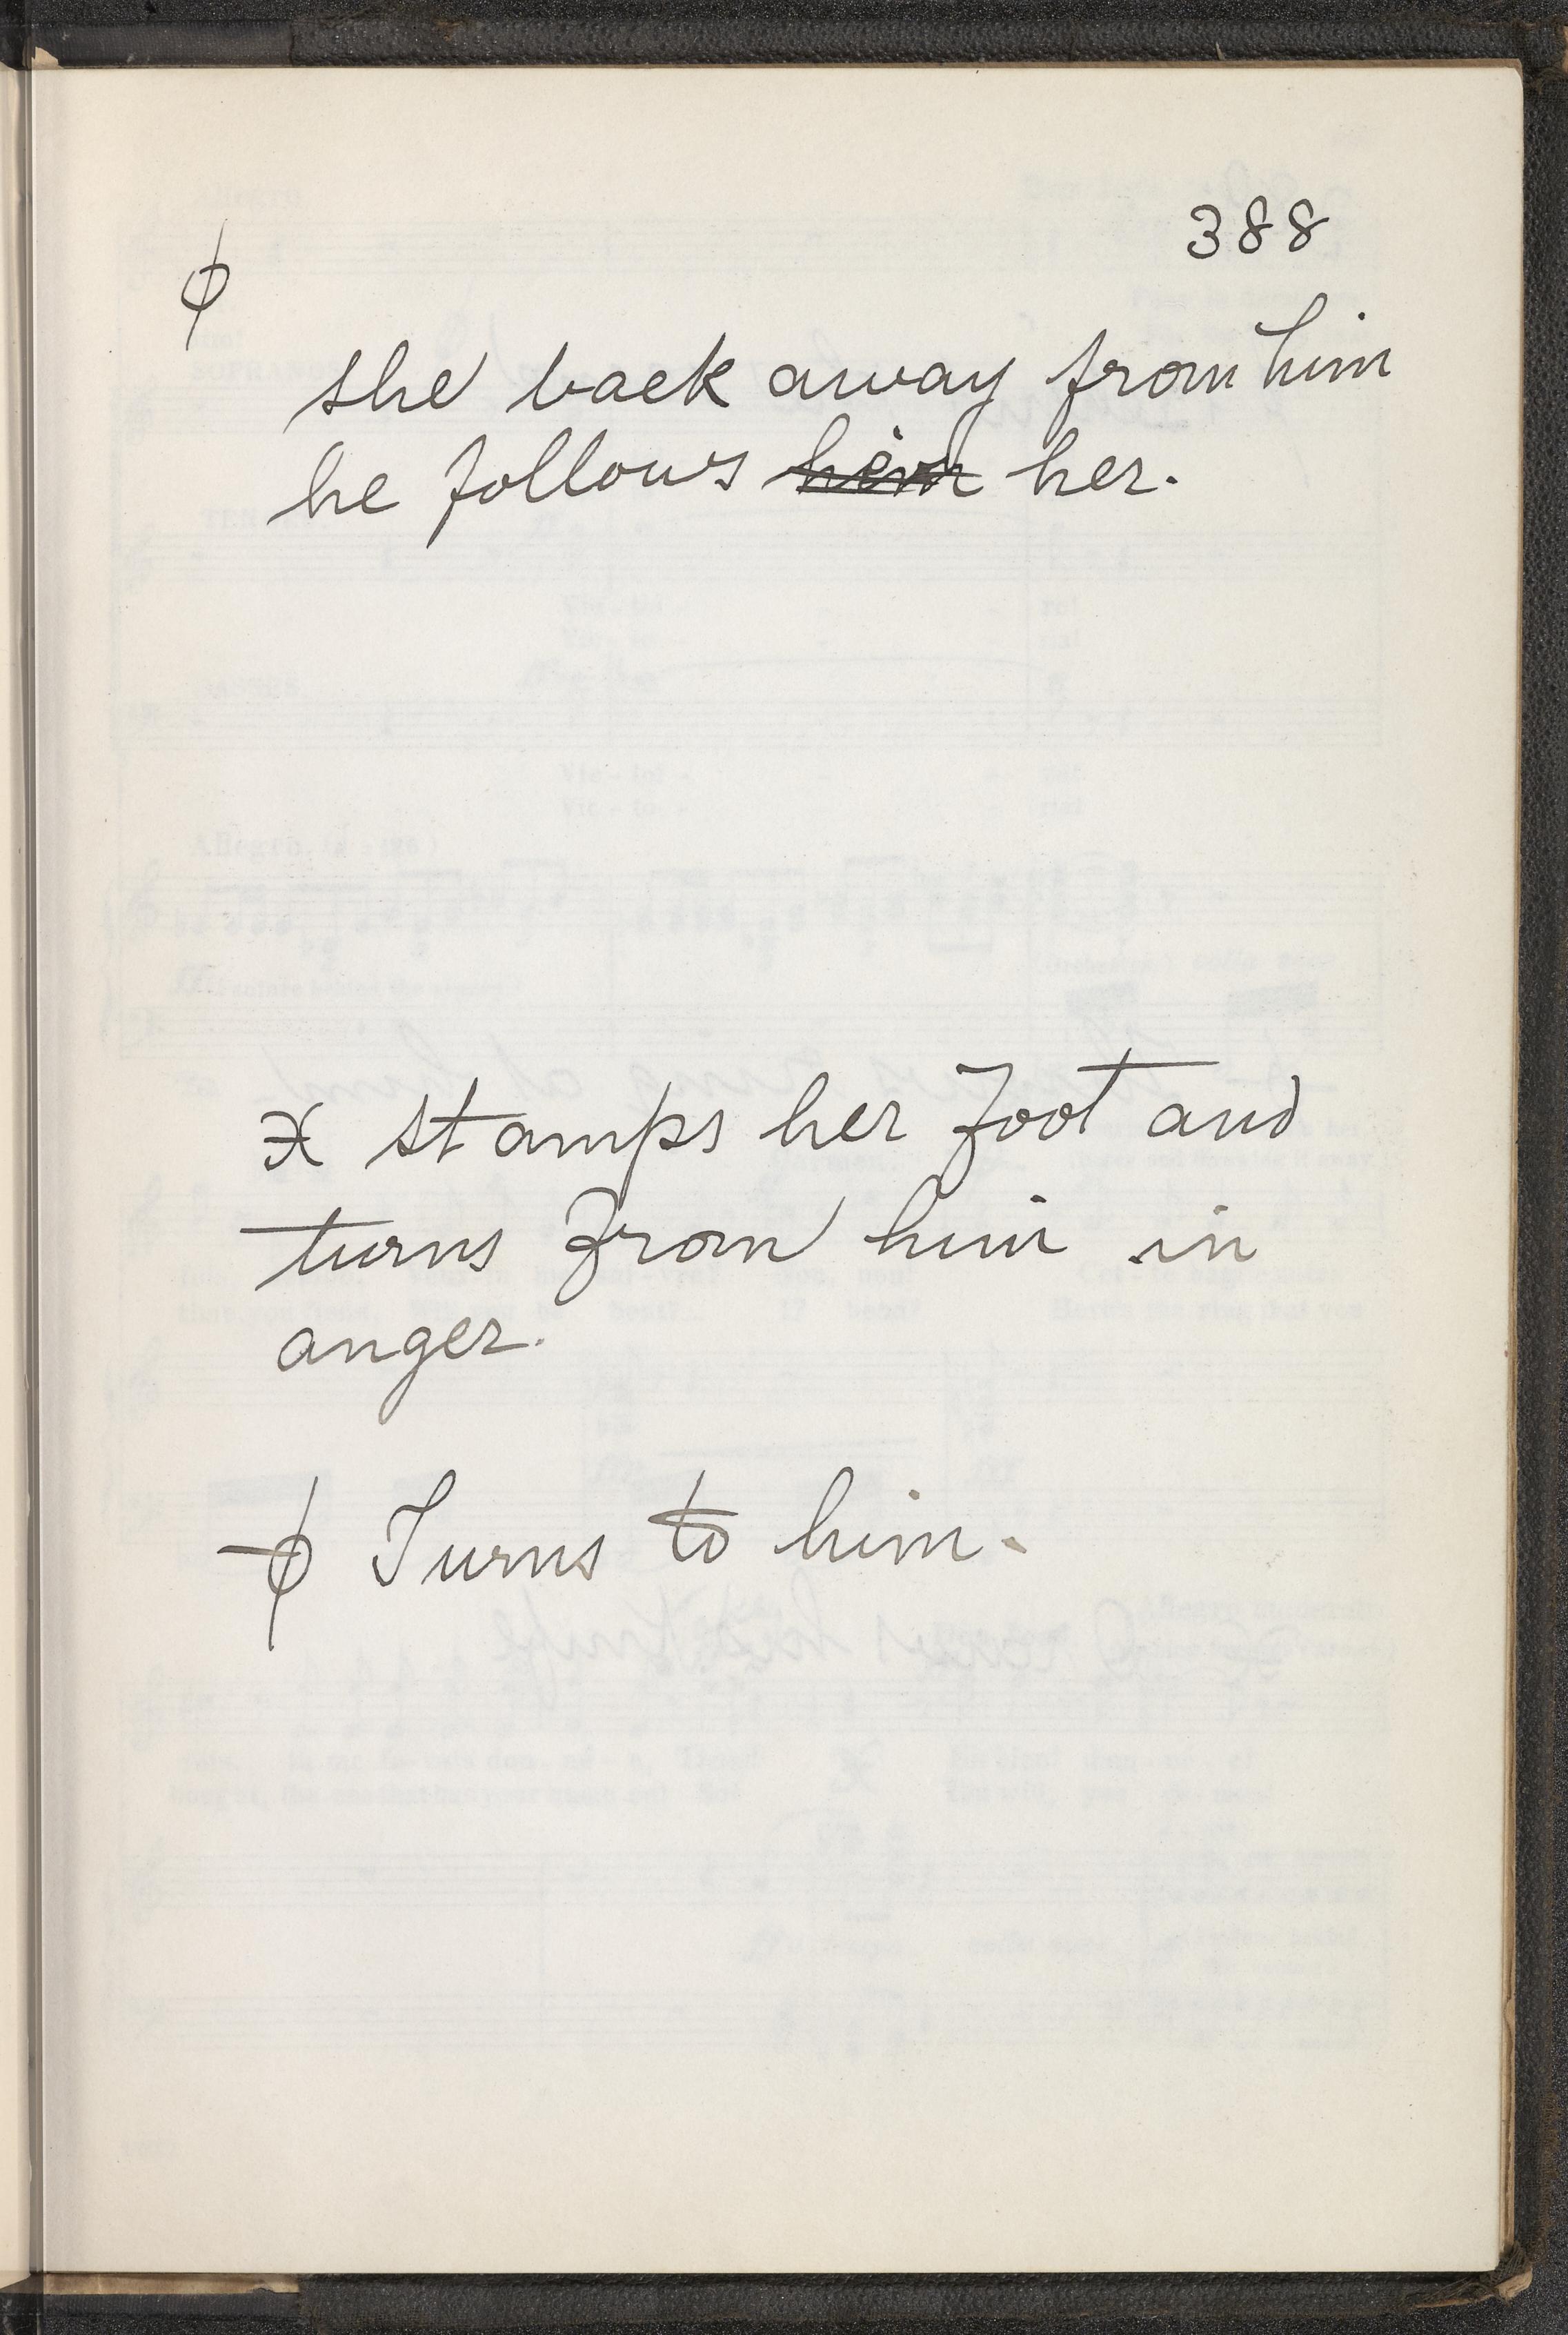 388
ϕ
she back away from him
he follows him her.
x stamps her foot and
turns from him in
anger.
ϕ Turns to him.